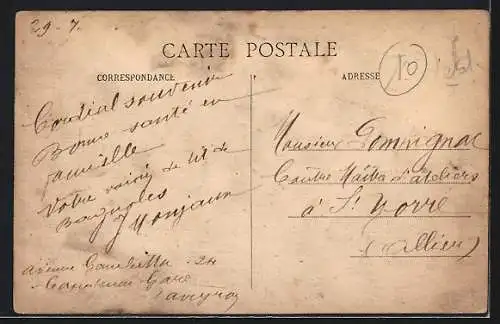 29-7.
CARTE POSTALE
CORRESPONDANCE
ADRESSE
10
Cordial souvenir
Bonne santé en
famille
Votre voisin de lit de
Bagnoles
Monsieur
Contre Maître d'ateliers
à St Yorre
(Allier)
Avenue Gambetta 24
Gare
Aveyron